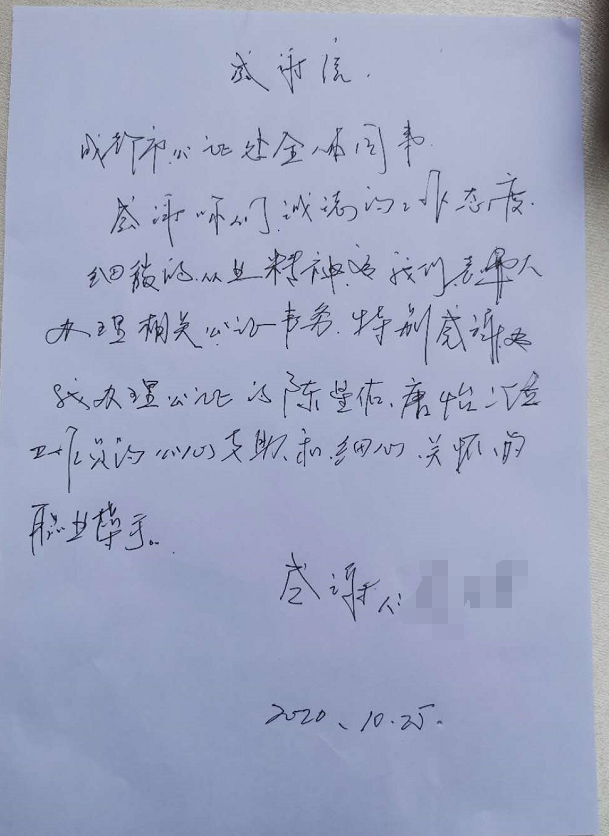 感谢信.
成都市公证处全体同事
感谢你们诚恳的工作态度.
细致的从业精神,为我们老人
办理相关公证事务.特别感谢为
我办理公证的陈 佑、唐怡 位
工作员的 心支助和细心关怀、的
职业操守。
感谢人:
2020、10.25.